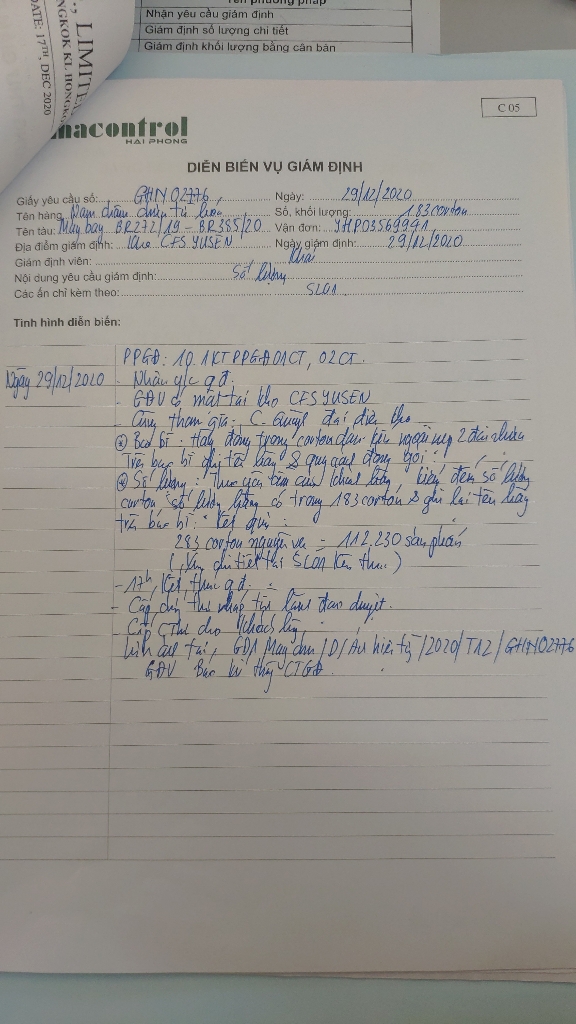 Tên phương pháp
Nhận yêu cầu giám định
Giám định số lượng chi tiết
Giám định khối lượng bằng cân bàn
., LIMITE
NGKOK KI. HONGKO
DATE: 17TH, DEC 2020
C 05
nacontrol
HAI PHONG
DIỄN BIẾN VỤ GIÁM ĐỊNH
Giấy yêu cầu số: GHN 02776, Ngày: 29/12/2020
Tên hàng: Nam châm Số, khối lượng: 183 carton
Tên tàu: Máy bay BR272/19 - BR385/20 Vận đơn: YHP03569991
Địa điểm giám định: Kho CFS YUSEN Ngày giám định: 29/12/2020
Giám định viên: Khải
Nội dung yêu cầu giám định: Số lượng
Các ấn chỉ kèm theo: SL01
Tình hình diễn biến:
PPGĐ: 10.1KT PPGĐ 01CT, 02CT.
Ngày 29/12/2020 - Nhận y/c gđ.
- GĐV có mặt tại kho CFS YUSEN
- Cùng tham gia: C. Quỳnh đại diện kho
* Bao bì: Hàng đóng trong carton dán kín ngoài nẹp 2 đai nhựa
Trên bao bì ghi tên hàng & quy cách đóng gói.
* Số lượng: Theo yêu cầu của khách hàng, kiểm đếm số lượng
carton số lượng hàng có trong 183 carton & ghi lại tên hàng
trên bao bì. Kết quả:
283 carton nguyên vẹn = 112.230 sản phẩm
( chi tiết SL01 kèm theo)
- 17h, Kết thúc gđ.
- lãnh đạo duyệt.
- Cấp CThư cho khách hàng.
tại, GĐ1 May /D/ /2020/T12/GHN02776
GĐV CTGĐ.